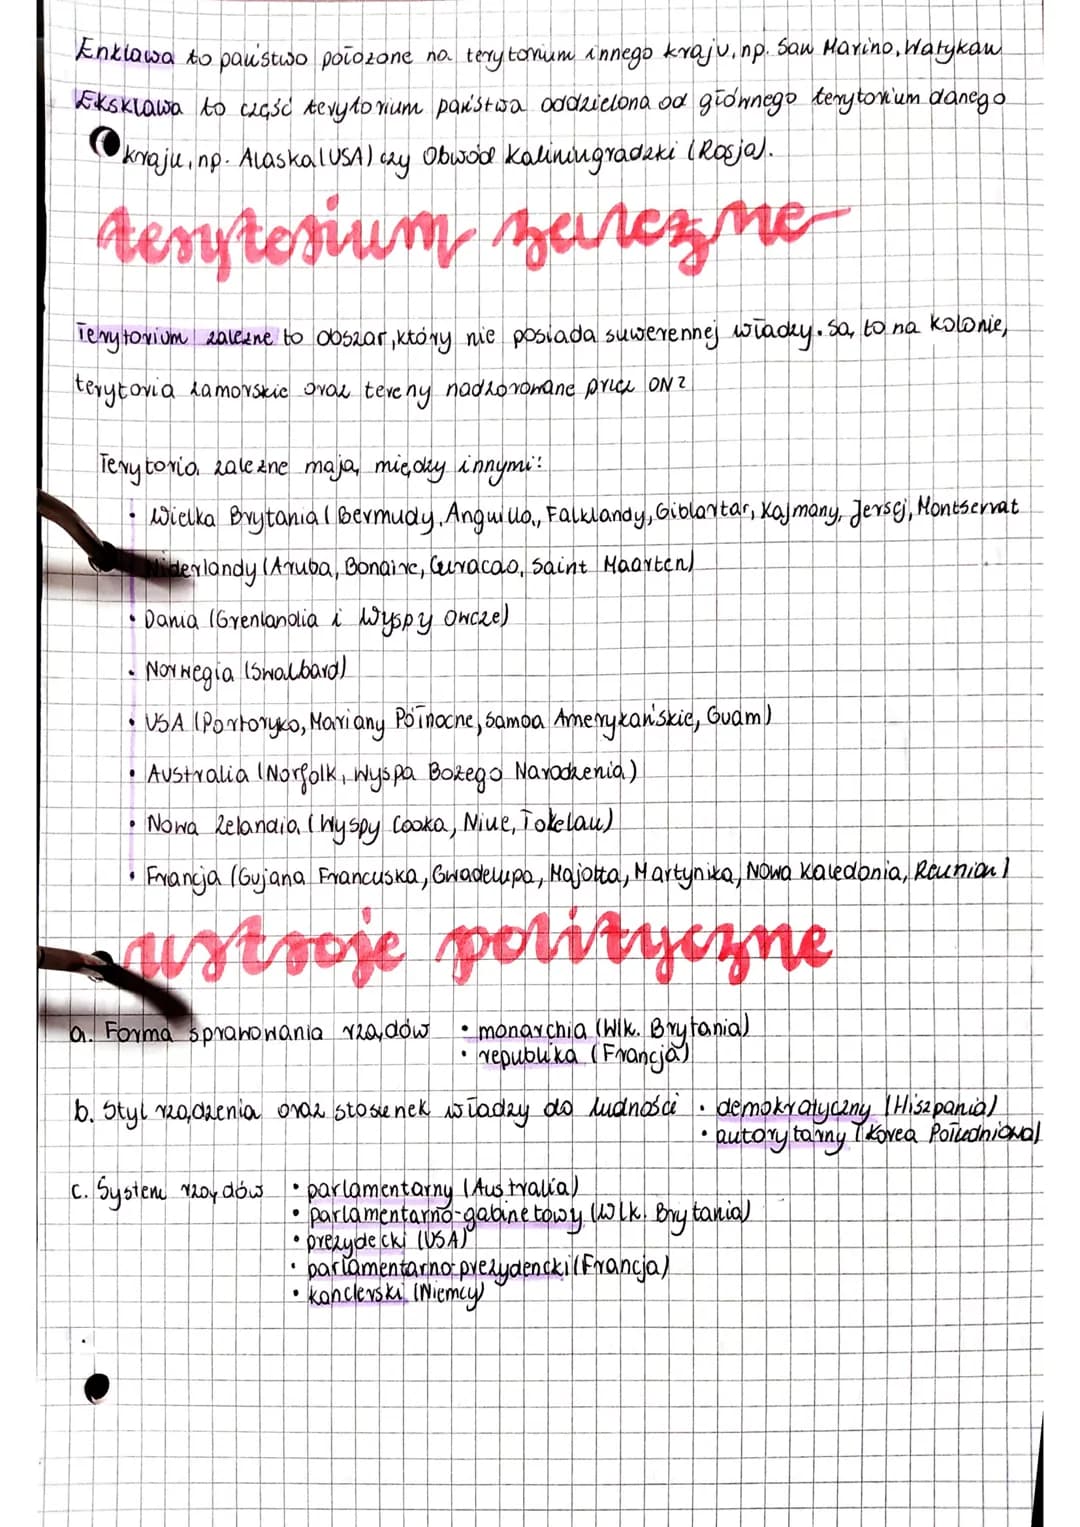 Enklawa to państwo położone na terytorium innego kraju, np. San Marino, Watykan
Eksklawa to część terytorium państwa oddzielona od głównego terytorium danego
kraju, np. Alaska (USA) czy Obwód Kaliningradzki (Rosja).
terytorium zależne
Terytorium zależne to obszar, który nie posiada suwerennej władzy. Są to na kolonie,
terytoria zamorskie oraz tereny nadzorowane przez ONZ
Terytoria zależne mają między innymi:
• Wielka Brytania (Bermudy, Anguilla, Falklandy, Giblartar, Kajmany, Jersej, Montserrat
Niderlandy (Aruba, Bonaire, Curacao, Saint Maarten)
• Dania (Grenlandia i Wyspy Owcze)
• Norwegia (Swalbard)
• USA (Portoryko, Mariany Północne, Samoa Amerykańskie, Guam)
• Australia (Norfolk, Wyspa Bożego Narodzenia)
• Nowa Zelandia (Wyspy Cooka, Niue, Tokelau)
• Francja (Gujana Francuska, Gwadelupa, Majotta, Martynika, Nowa Kaledonia, Reunion)
ustroje polityczne
a. Forma sprawowania rządów • monarchia (Wlk. Brytania)
• republika (Francja)
b. Styl rządzenia oraz stosunek władzy do ludności • demokratyczny (Hiszpania)
• autorytarny (Korea Południowa)
c. System rządów • parlamentarny (Australia)
• parlamentarno-gabinetowy (Wlk. Brytania)
• prezydecki (USA)
• parlamentarno-prezydencki (Francja)
• kanclerski (Niemcy)